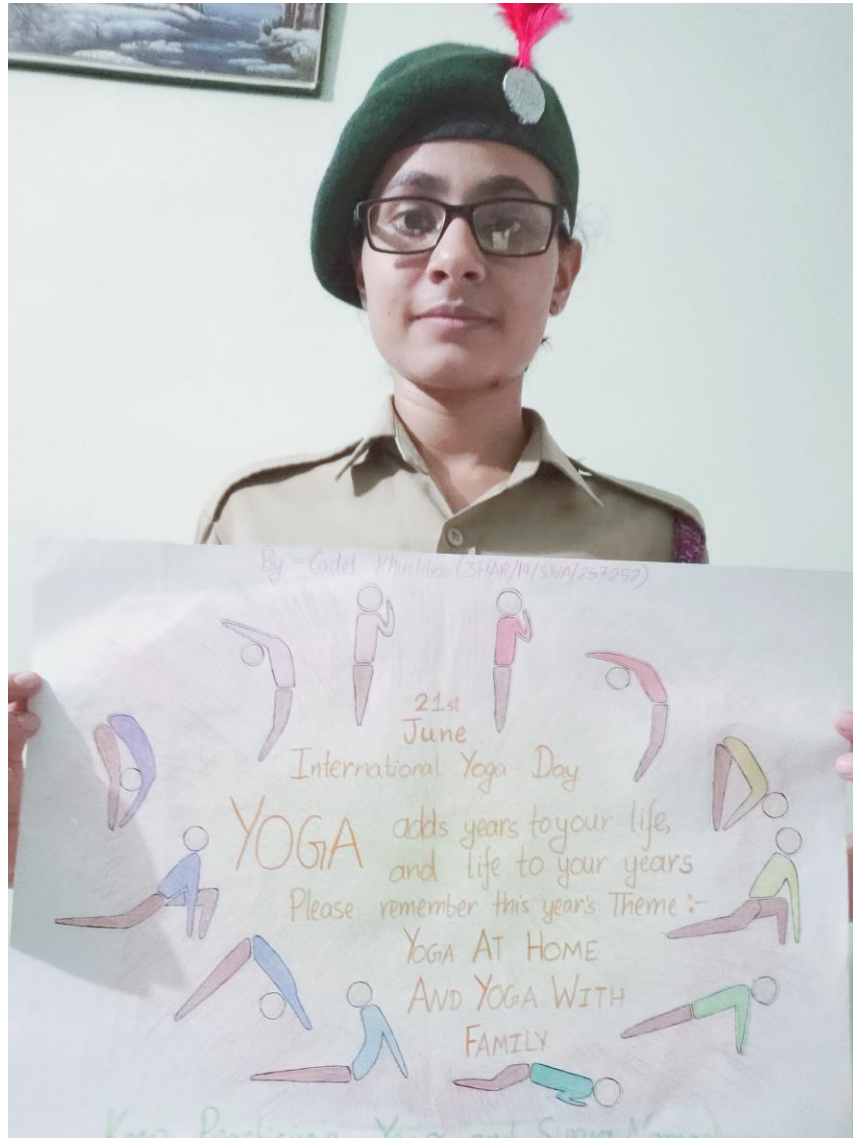 By - Cadet Khushboo (3HAR/19/SWA/257252)
21st
June
International Yoga Day
YOGA adds years to your life,
and life to your years
Please remember this year's Theme :-
YOGA AT HOME
AND YOGA WITH
FAMILY
Keep Practicing Yoga and Surya Namask